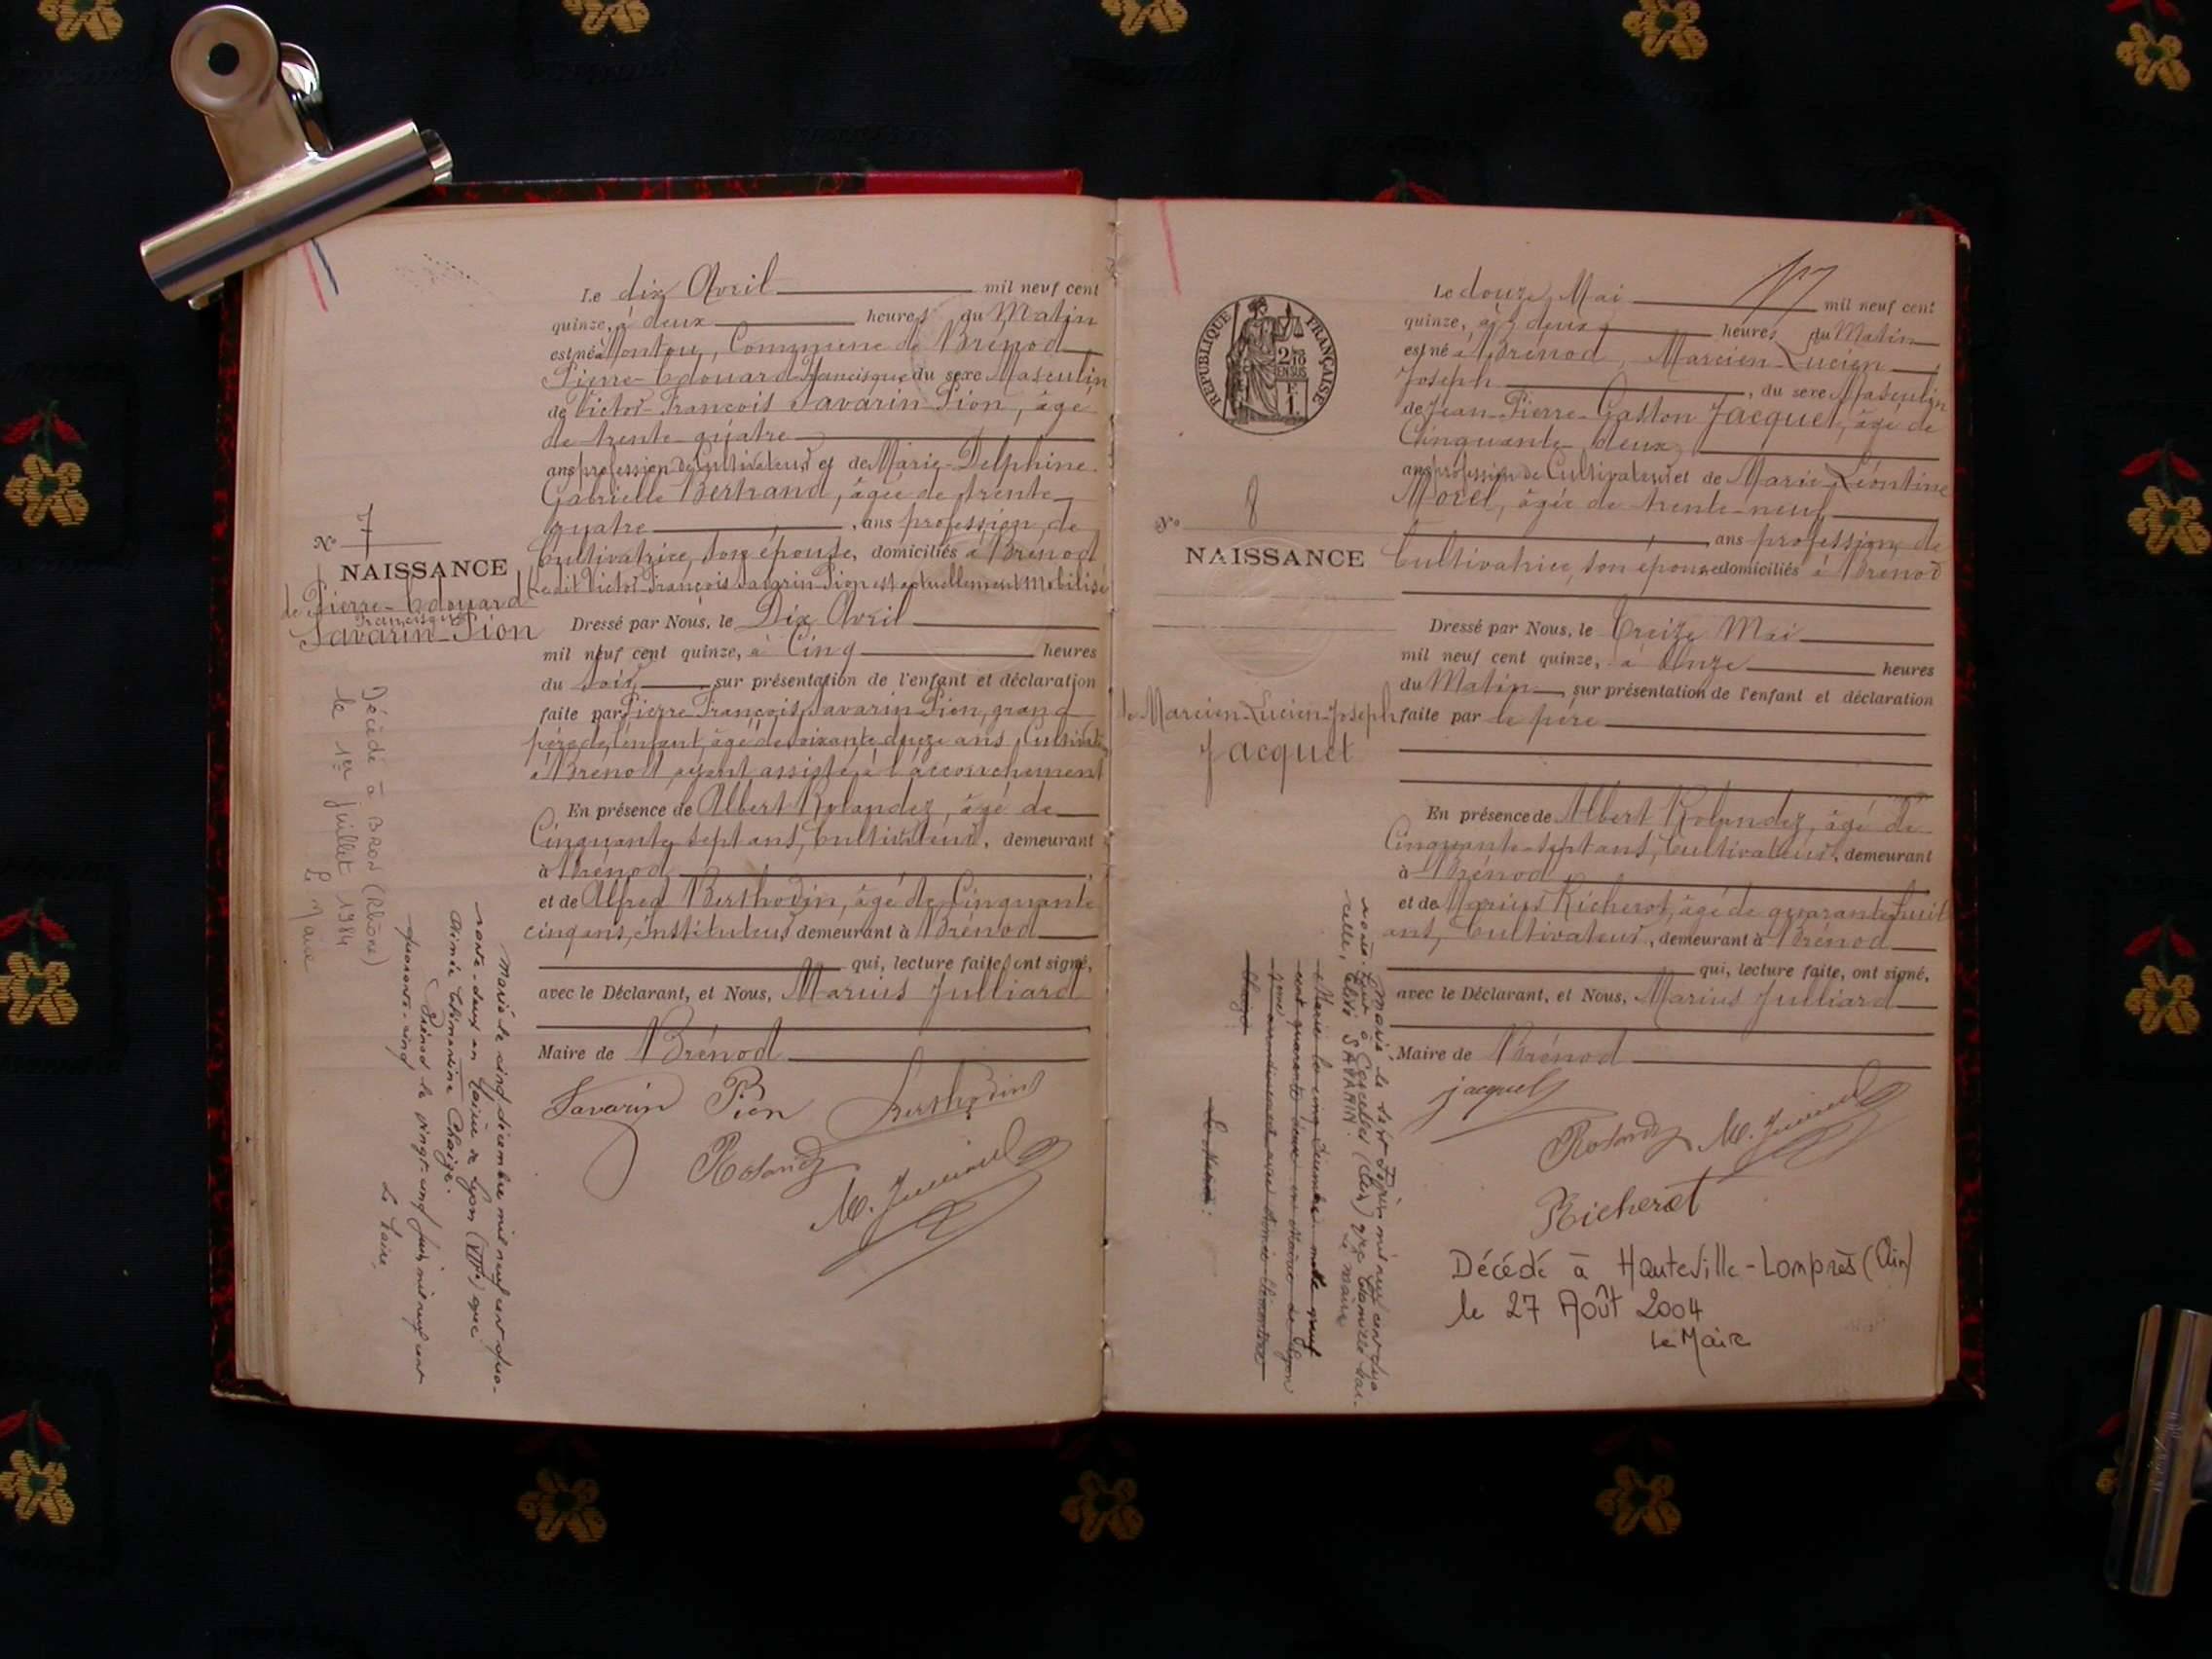 Le dix Avril mil neuf cent
quinze, à deux heures du Matin
est né à Montou, Commune de Brénod
Pierre-Edouard Francisque du sexe Masculin
de Victor-François Savarin-Pion, âgé
de trente-quatre
ans profession de Cultivateur et de Marie-Delphine
Gabrielle Bertrand, âgée de trente-
quatre, ans profession de
Cultivatrice, son épouse, domiciliés à Brénod
Ledit Victor-François Savarin-Pion est actuellement Mobilisé
N° 7
NAISSANCE
de Pierre-Edouard
Francisque
Savarin-Pion
Dressé par Nous, le Dix Avril
mil neuf cent quinze, à Cinq heures
du soir, sur présentation de l'enfant et déclaration
faite par Pierre François Savarin-Pion, grand
père de l'enfant, âgé de soixante-douze ans, Cultivateur
à Brénod, ayant assisté à l'accouchement
En présence de Albert Rolandez, âgé de
Cinquante sept ans, Cultivateur, demeurant
à Brénod
et de Alfred Berthodin, âgé de Cinquante
cinq ans, Instituteur demeurant à Brénod
qui, lecture faite, ont signé,
avec le Déclarant, et Nous, Marius Julliard
Maire de Brénod
Savarin Pion Berthodin
Rolandez
M. Julliard
Décédé à BRON (Rhône)
le 1er juillet 1984
Le Maire
Marié le cinq décembre mil neuf cent qua-
rante-deux en Mairie de Lyon (VIIe) avec
Aimée Clémentine Chaige.
Brénod le vingt-cinq juin mil neuf cent
quarante-cinq
Le Maire
REPUBLIQUE FRANÇAISE
2/10
EN SUS
1 F.
Le douze Mai mil neuf cent
quinze, à deux heures du Matin
est né à Brénod, Marcien-Lucien
Joseph, du sexe Masculin
de Jean-Pierre-Gaston Jacquet, âgé de
Cinquante-deux
ans profession de Cultivateur et de Marie-Léontine
Morel, âgée de trente-neuf
ans profession de
Cultivatrice, son épouse domiciliés à Brénod
N° 8
NAISSANCE
de Marcien-Lucien-Joseph
Jacquet
Dressé par Nous, le Treize Mai
mil neuf cent quinze, à Onze heures
du Matin, sur présentation de l'enfant et déclaration
faite par le père
En présence de Albert Rolandez, âgé de
Cinquante-sept ans, Cultivateur, demeurant
à Brénod
et de Marius Richerot, âgé de quarante-huit
ans, Cultivateur, demeurant à Brénod
qui, lecture faite, ont signé,
avec le Déclarant, et Nous, Marius Julliard
Maire de Brénod
jacquet
Rolandez M. Julliard
Richerot
Décédé à Hauteville-Lompnès (Ain)
le 27 Août 2004
Le Maire
Marié le sept mil neuf cent qua
rante à (Ain) avec Camille
SAVARIN.
Le Maire
Marié le cinq décembre mille neuf
cent quarante deux en Mairie de Lyon
7eme arrondissement avec Aimée Clémentine
Chaige
Le Maire :